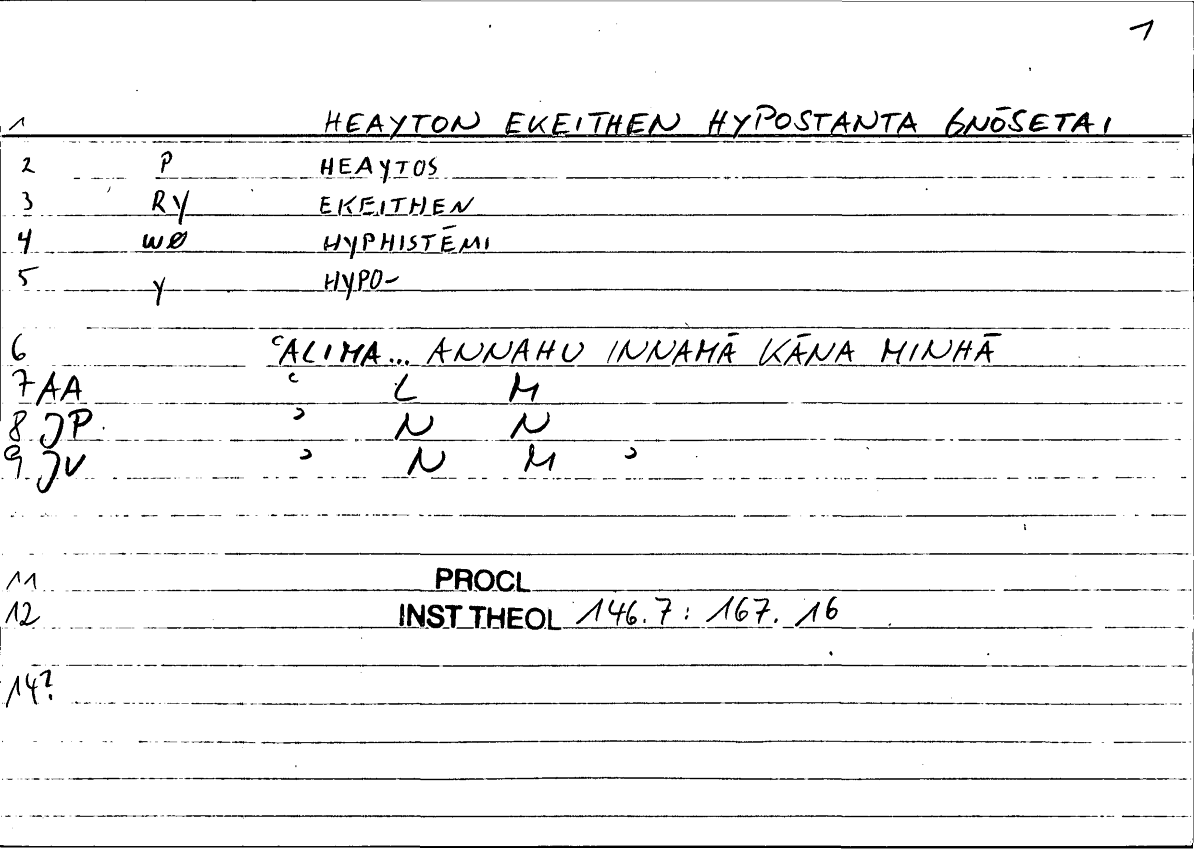 1
1 HEAYTON EKEITHEN HYPOSTANTA GNŌSETAI
2 P HEAYTOS
3 RY EKEITHEN
4 WØ HYPHISTĒMI
5 Y HYPO-
6 ʿALIMA... ANNAHU INNAMĀ KĀNA MINHĀ
7 AA ʿ L M
8 JP ʾ N N
9 JV ʾ N M ʾ
11 PROCL
12 INST THEOL 146.7: 167.16
14?